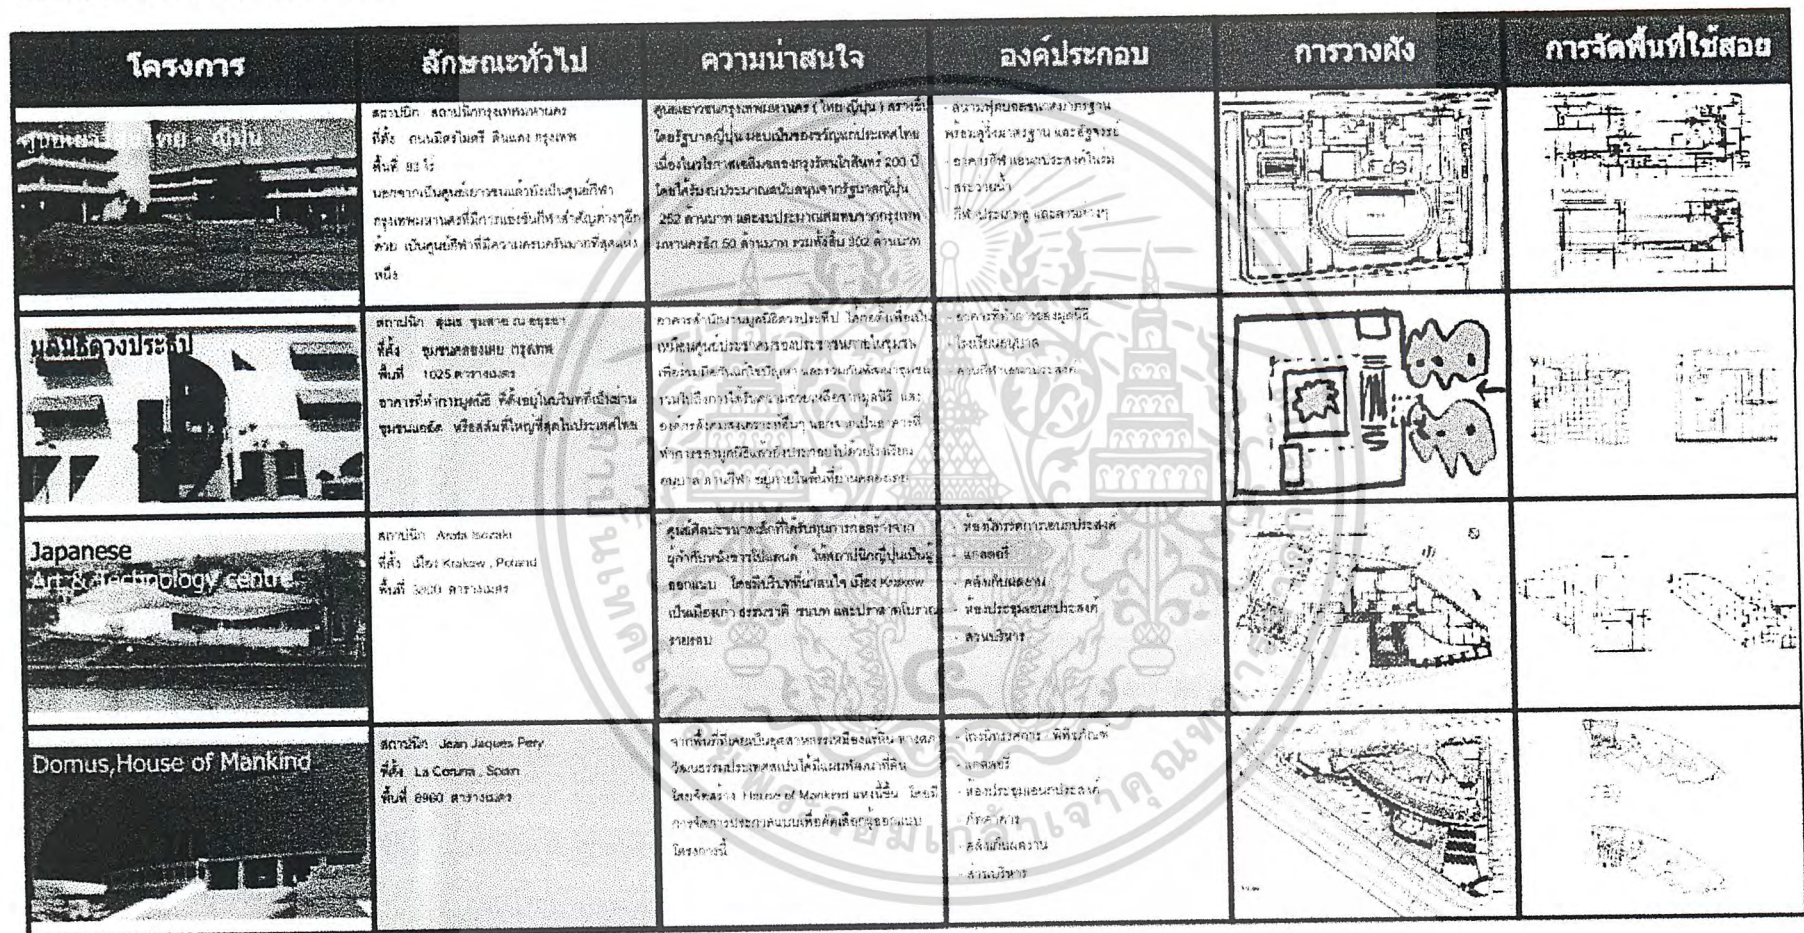 โครงการ
ลักษณะทั่วไป
ความน่าสนใจ
องค์ประกอบ
การวางผัง
การจัดพื้นที่ใช้สอย
ศูนย์เยาวชนไทย - ญี่ปุ่น
สถาปนิก สถาปนิกกรุงเทพมหานคร
ที่ตั้ง ถนนมิตรไมตรี ดินแดง กรุงเทพ
พื้นที่ 93 ไร่
นอกจากเป็นศูนย์เยาวชนแล้วยังเป็นศูนย์กีฬา
กรุงเทพมหานครที่มีการแข่งขันกีฬาสำคัญต่างๆอีก
ด้วย เป็นศูนย์กีฬาที่มีความครบครันมากที่สุดแห่ง
หนึ่ง
ศูนย์เยาวชนกรุงเทพมหานคร ( ไทย-ญี่ปุ่น ) สร้างขึ้น
โดยรัฐบาลญี่ปุ่น มอบเป็นของขวัญแก่ประเทศไทย
เนื่องในวโรกาสเฉลิมฉลองกรุงรัตนโกสินทร์ 200 ปี
โดยได้รับงบประมาณสนับสนุนจากรัฐบาลญี่ปุ่น
252 ล้านบาท และงบประมาณสมทบจากกรุงเทพ
มหานครอีก 50 ล้านบาท รวมทั้งสิ้น 302 ล้านบาท
- สนามฟุตบอลขนาดมาตรฐาน
พร้อมลู่วิ่งมาตรฐาน และอัฒจรรย์
- อาคารกีฬาเอนกประสงค์ในร่ม
- สระว่ายน้ำ
กีฬาประเภทลู่ และลานต่างๆ
มูลนิธิดวงประธีป
สถาปนิก สุเมธ ชุมสาย ณ อยุธยา
ที่ตั้ง ชุมชนคลองเตย กรุงเทพ
พื้นที่ 1025 ตารางเมตร
อาคารที่ทำการมูลนิธิ ที่ตั้งอยู่ในบริบทที่เป็นย่าน
ชุมชนแออัด หรือสลัมที่ใหญ่ที่สุดในประเทศไทย
อาคารสำนักงานมูลนิธิดวงประทีป ได้ก่อตั้งเพื่อเป็น
เหมือนศูนย์ประชาคมของประชาชนภายในชุมชน
เพื่อร่วมมือกันแก้ไขปัญหา และร่วมกันพัฒนาชุมชน
รวมไปถึงการได้รับความช่วยเหลือจากมูลนิธิ และ
องค์กรสังคมสงเคราะห์อื่นๆ นอกจากเป็นอาคารที่
ทำการของมูลนิธิแล้วยังประกอบไปด้วยโรงเรียน
อนุบาล ลานกีฬา อยู่ภายในพื้นที่ย่านคลองเตย
- อาคารที่ทำการของมูลนิธิ
- โรงเรียนอนุบาล
- ลานกีฬาเอนกประสงค์
Japanese
Art & Technology centre
สถาปนิก Arata Isozaki
ที่ตั้ง เมือง Krakow , Poland
พื้นที่ ตารางเมตร
ศูนย์ศิลปะขนาดเล็กที่ได้รับทุนการก่อสร้างจาก
ผู้กำกับหนังชาวโปแลนด์ ให้สถาปนิกญี่ปุ่นเป็นผู้
ออกแบบ โดยมีบริบทที่น่าสนใจ เมือง Krakow
เป็นเมืองเก่า ธรรมชาติ ชนบท และปราสาทโบราณ
รายรอบ
- ห้องนิทรรศการเอนกประสงค์
- แกลลอรี่
- คลังเก็บผลงาน
- ห้องประชุมเอนกประสงค์
- ส่วนบริหาร
Domus,House of Mankind
สถาปนิก Jean Jaques Pery
ที่ตั้ง La Coruna , Spain
พื้นที่ 8960 ตารางเมตร
จากพื้นที่ที่เคยเป็นอุตสาหกรรมเหมืองแร่หิน ทางสภา
วัฒนธรรมประเทศสเปนได้มีแผนพัฒนาที่ดิน
โดยจัดสร้าง House of Mankind แห่งนี้ขึ้น โดยมี
การจัดการประกวดแบบเพื่อคัดเลือกผู้ออกแบบ
โครงการนี้
- โถงนิทรรศการ พิพิธภัณฑ์
- แกลลอรี่
- ห้องประชุมเอนกประสงค์
- ภัตตาคาร
- คลังเก็บผลงาน
- ส่วนบริหาร